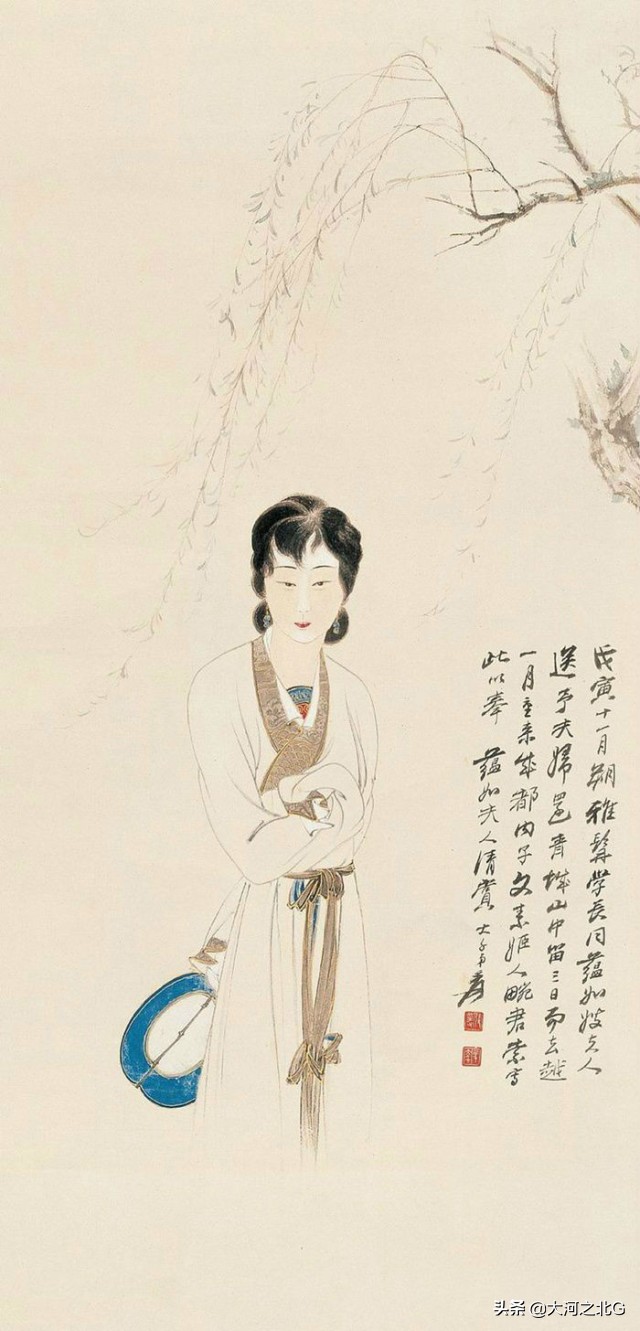 戊寅十一月朔雅髯学长同蕴如嫂夫人
送予夫婦還青城山中留三日而去越
一月重来成都内子文素姬人畹君索写
此以奉 蕴如夫人清赏 大千弟爰
头条 @大河之北G